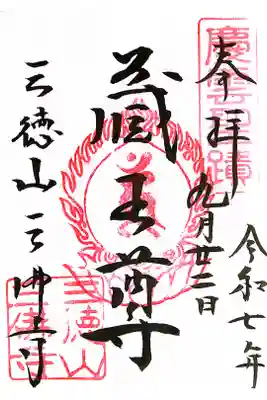 奉拝
令和七年
九月廿二日
蔵王尊
三徳山三佛寺
慶雲聖蹟
三徳山
三佛寺